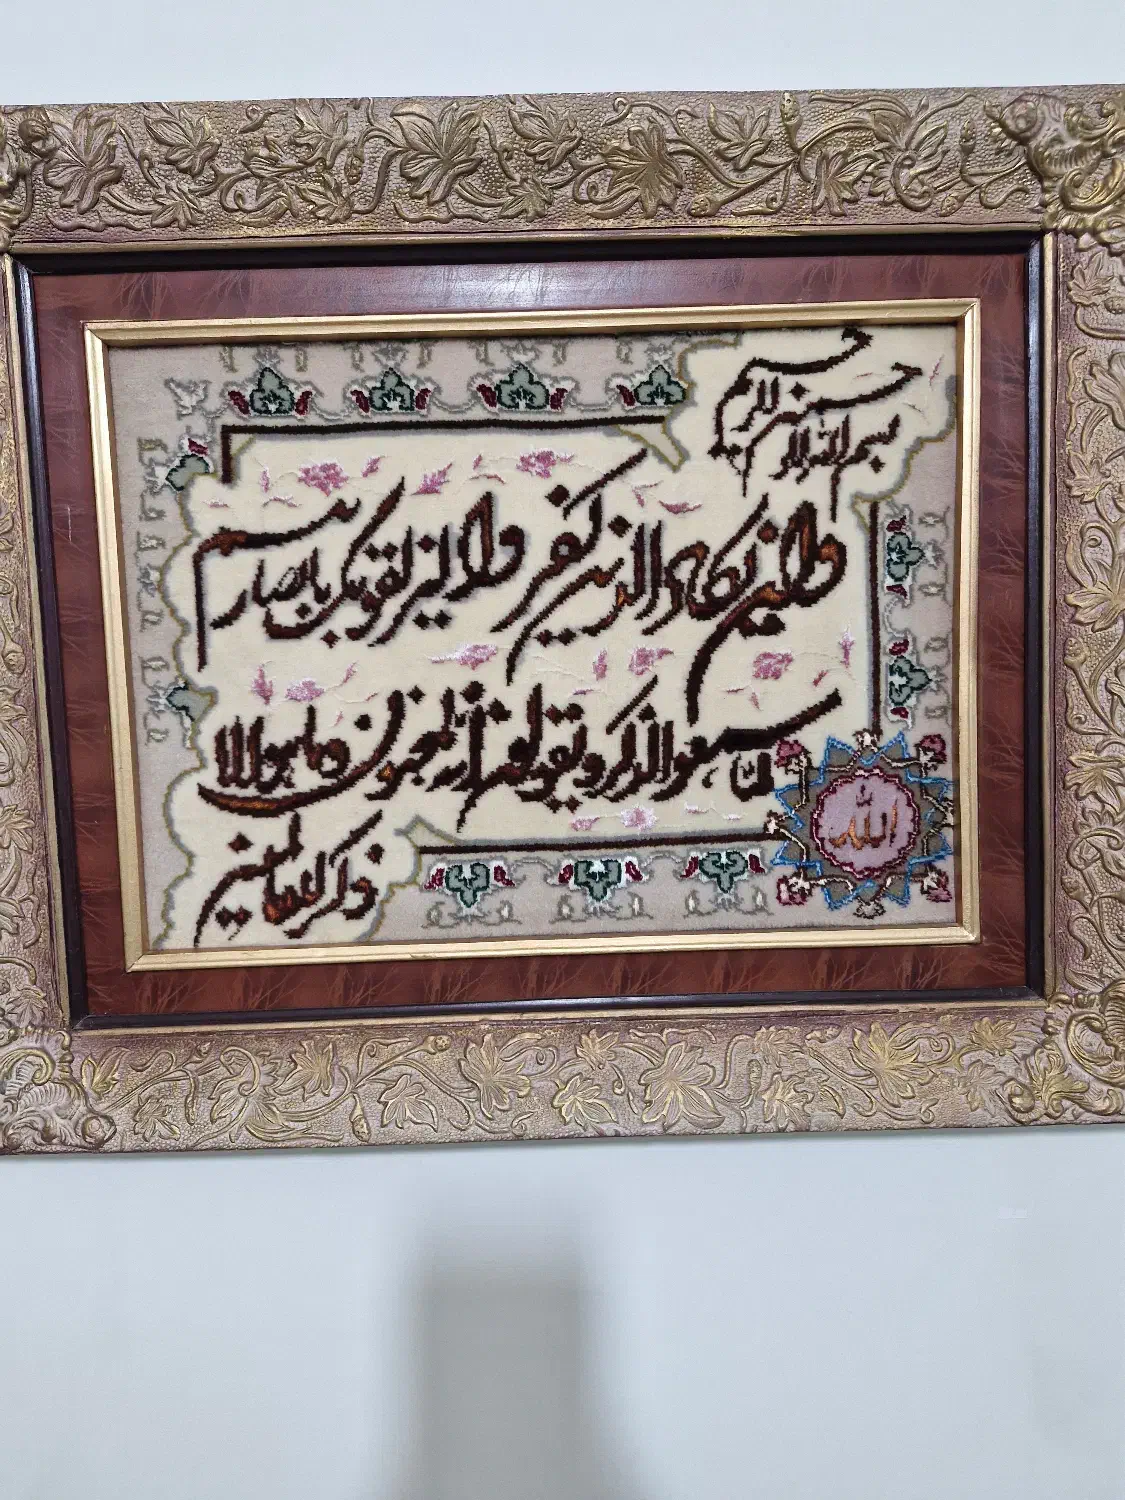 بسم الله الرحمن الرحیم
وان یکاد الذین کفروا لیزلقونک بابصارهم
لما سمعوا الذکر ویقولون انه لمجنون وما هو الا
ذکر للعالمین
الله